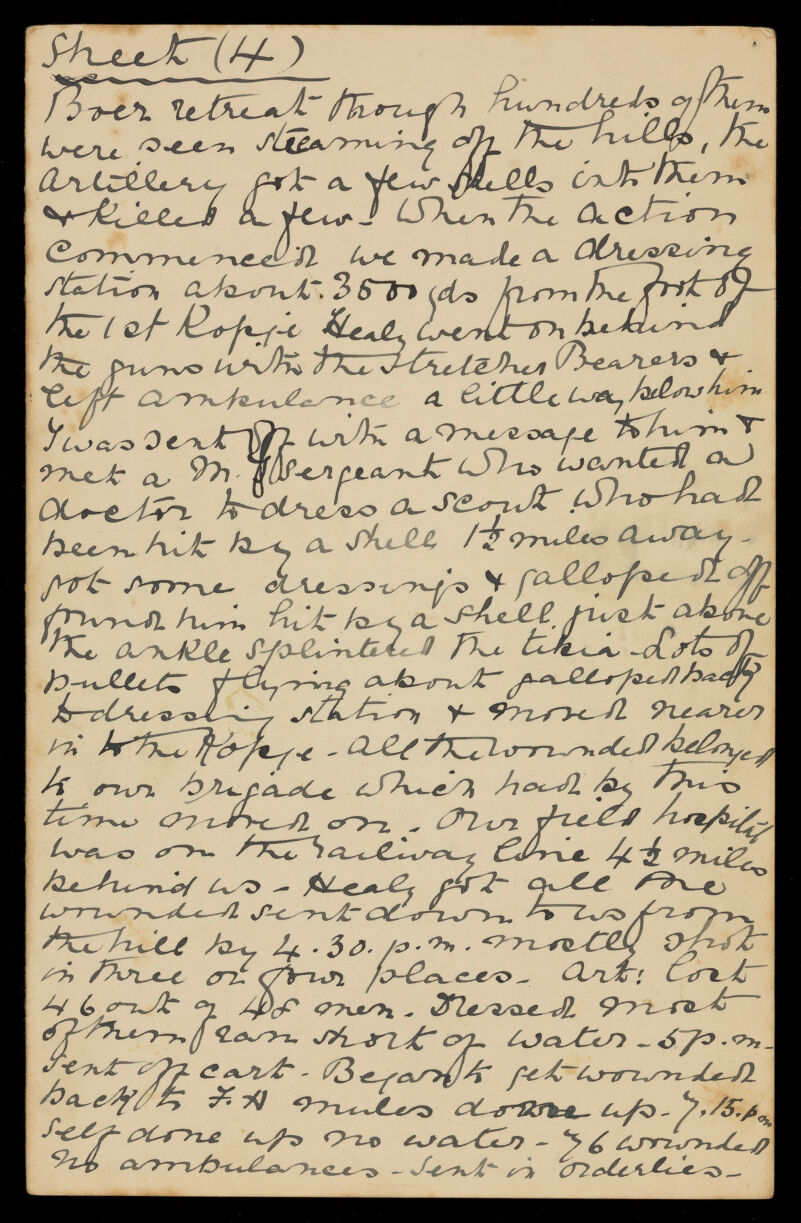 Sheet (4)
Boer retreat though hundreds of them
were seen steaming off the hills, the
Artillery got a few shells into them
& killed a few - When the action
commenced we made a dressing
station about 3500 yds from the foot of
the 1st Kopje Healy went on behind
the guns with the stretcher Bearers &
left ambulance a little way below him
I was sent off with a message to him &
met a M. Sergeant who wanted a
doctor to dress a scout who had
been hit by a shell 1½ miles away -
got some dressings & galloped off
found him hit by a shell just above
the ankle splintered the tibia - Lots of
bullets flying about galloped back
to dressing station & moved nearer
in to the Kopje - All the wounded belonged
to own brigade which had by this
time moved on. Our field hospital
was on the railway line 4½ miles
behind us - Healy got all the
wounded sent down to us from
the hill by 4.30. p.m. mostly shot
in three or four places - Art: lost
46 out of 48 men. Dressed most
of them ran short of water - 5 p.m -
Sent off cart - Began to get wounded
back to F.H mules done up - 7.15. p m
Self done up no water - 76 wounded
no ambulances - Sent in orderlies -